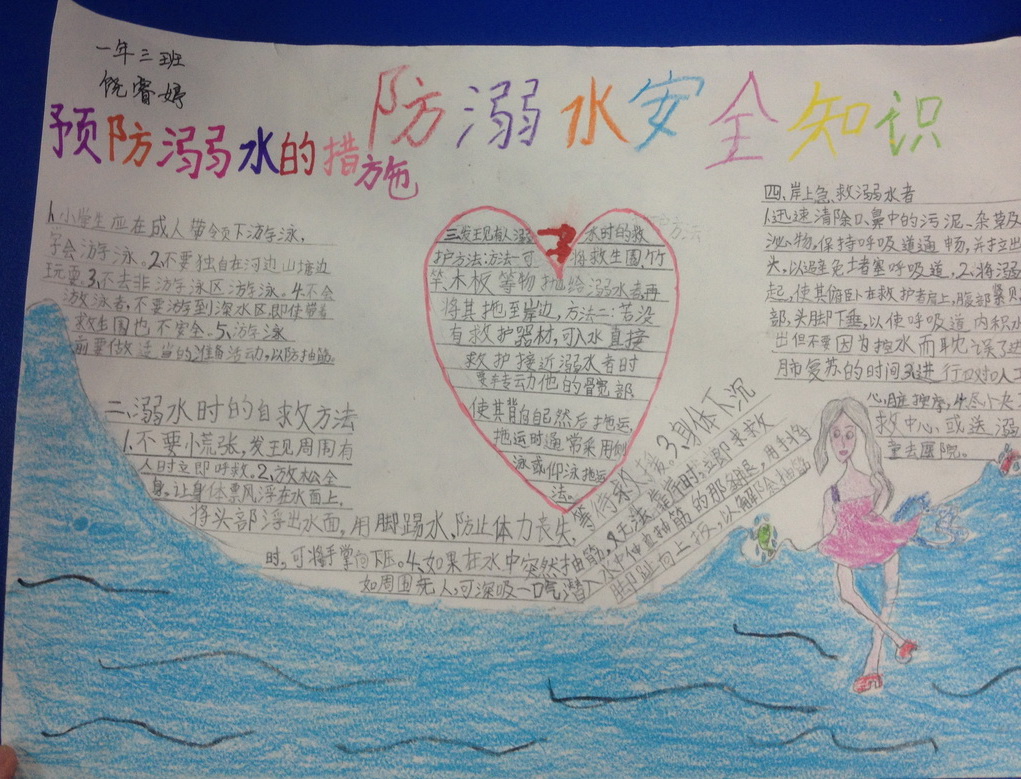 一年三班
饶睿婷
防溺水安全知识
预防溺水的措施
1.小学生应在成人带领下游泳,
学会游泳。2.不要独自在河边山塘边
玩耍。3.不去非游泳区游泳。4.不会
游泳者,不要游到深水区,即使带着
救生圈也不安全。5.游泳
前要做适当的准备活动,以防抽筋
二、溺水时的自救方法
1.不要小慌张,发现周围有
人时立即呼救。2.放松全
身,让身体漂风浮在水面上,
将头部浮出水面,用脚踢水,防止体力丧失,
等待救人援。3.身体下沉
时,可将手掌向下压。4.如果在水中突然抽筋,又无法靠岸时,立即求救
如周围无人,可深吸一口气潜入水中伸直抽筋的那条腿,用手将
脚趾向上扳,以解除抽筋
三发现有人溺水时的救
护方法:方法一:可将救生圈,竹
竿,木板等物抛给溺水者再
将其拖到岸边,方法二:若没
有救护器材,可入水直接
救护接近溺水者时
要转动他的髋部
使其背向自己然后拖运,
拖运时通常采用侧
泳或仰泳拖运
法。
四、岸上急救溺水者
1.迅速清除口鼻中的污泥、杂草及
泌物,保持呼吸道通畅,并拉出
头,以避免堵塞呼吸道,2.将溺
起,使其俯卧在救护者肩上,腹部紧贝
部,头脚下垂,以使呼吸道内积水
出但不要因为控水而耽误了进
肺复苏的时间3.进行口对口人工
心脏按摩,4.尽快
救中心,或送溺
重去医院。